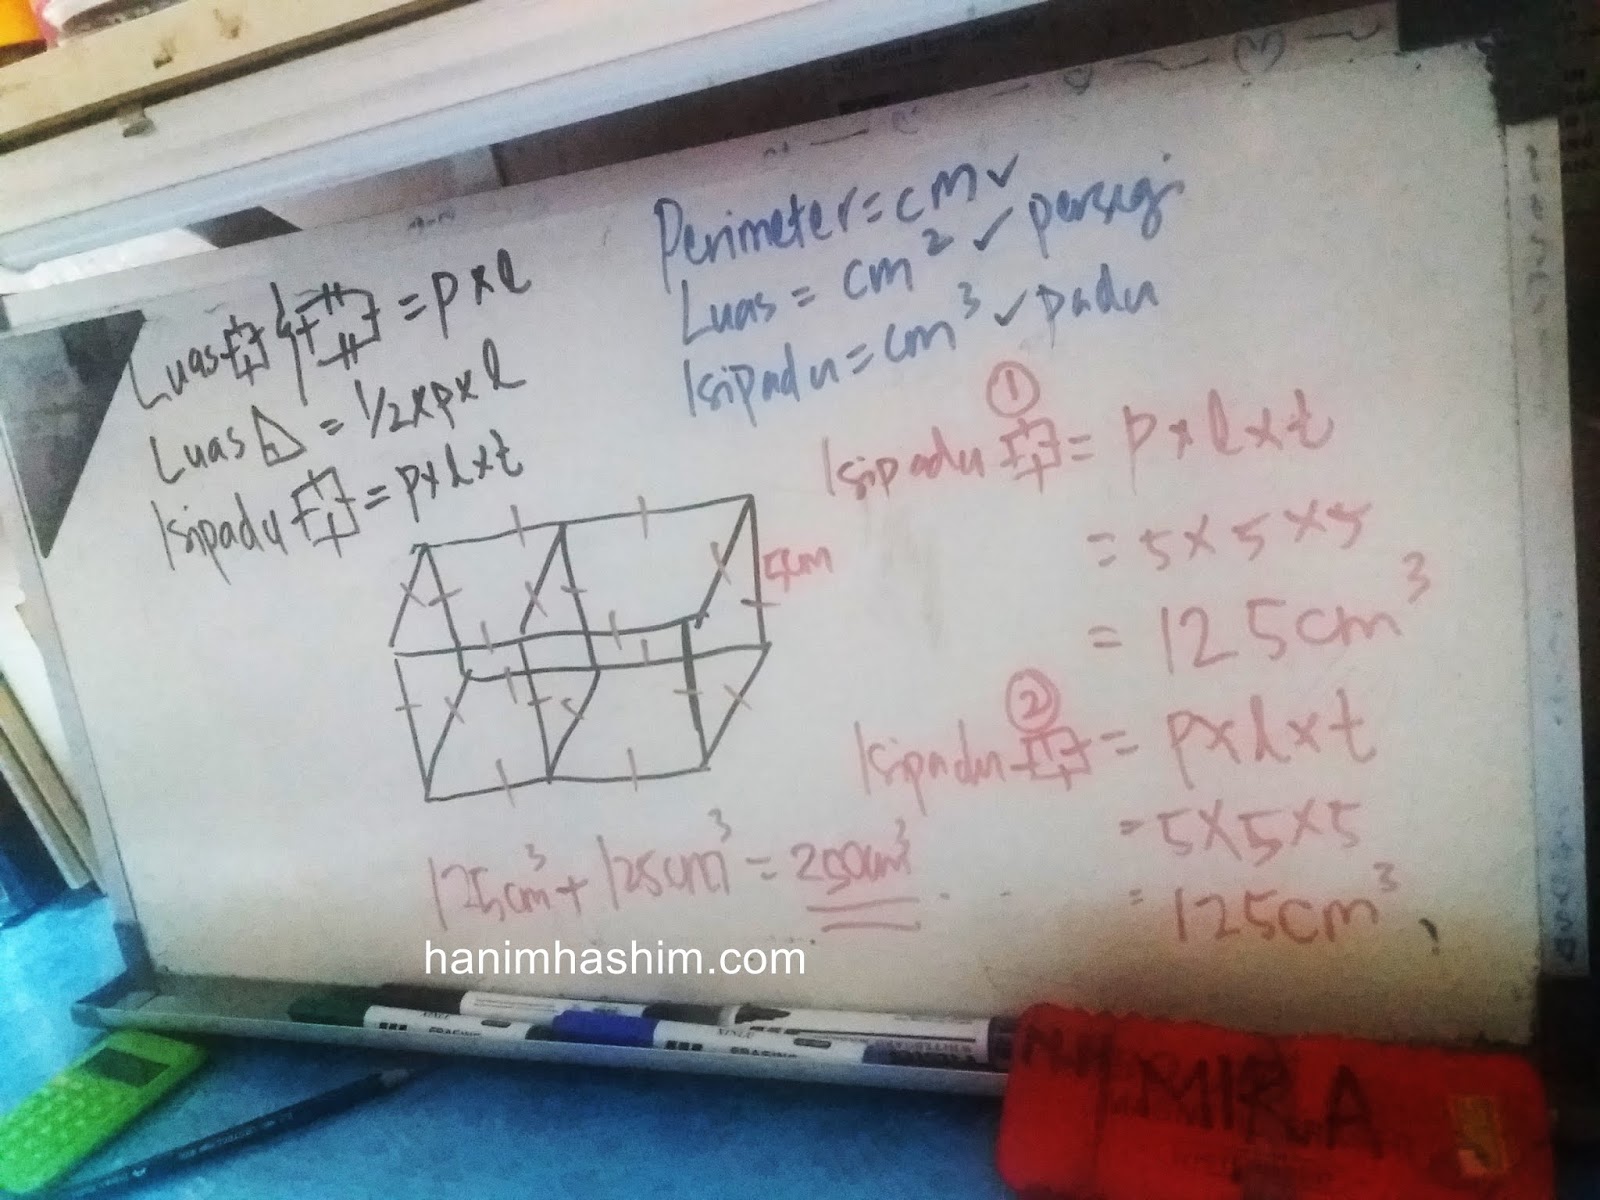 Luas = p x l
Luas = 1/2 x p x l
Isipadu = p x l x t
Perimeter = cm ✓
Luas = cm² ✓ persegi
Isipadu = cm³ ✓ padu
5cm
①
Isipadu = p x l x t
= 5 x 5 x 5
= 125cm³
②
Isipadu = p x l x t
= 5 x 5 x 5
= 125cm³
125cm³ + 125cm³ = 250cm³
hanimhashim.com
MIRA